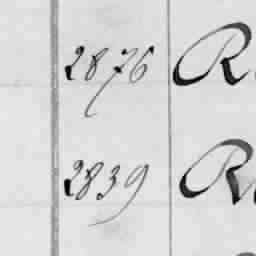 2876 R
2839 R